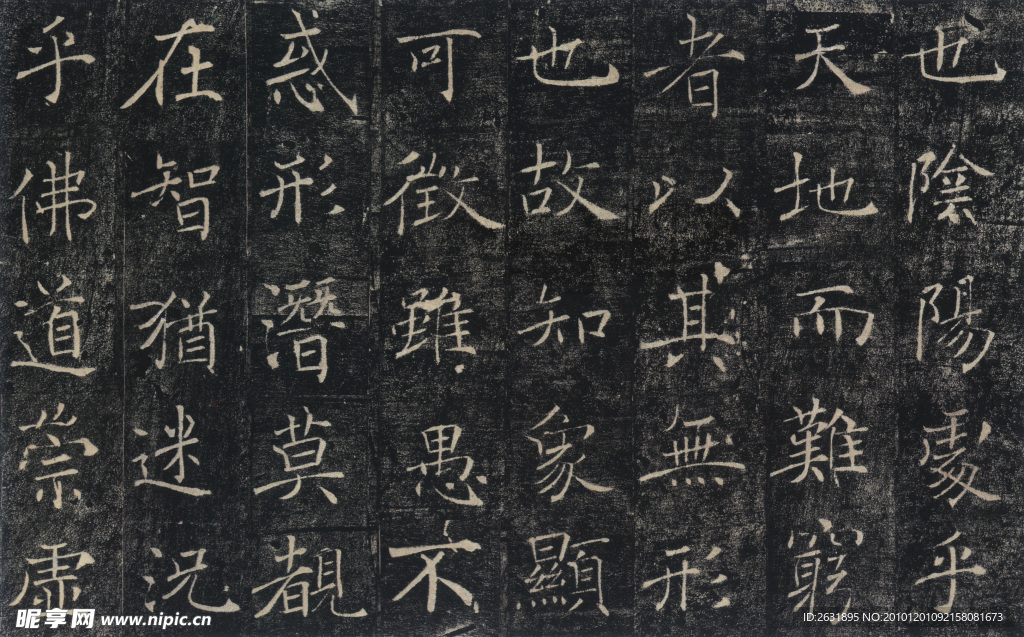 也陰陽處乎
天地而難窮
者以其無形
也故知象顯
可徵雖愚不
惑形潛莫覩
在智猶迷況
乎佛道崇虛
昵享网 www.nipic.cn
ID:2631895 NO:20101201092158081673